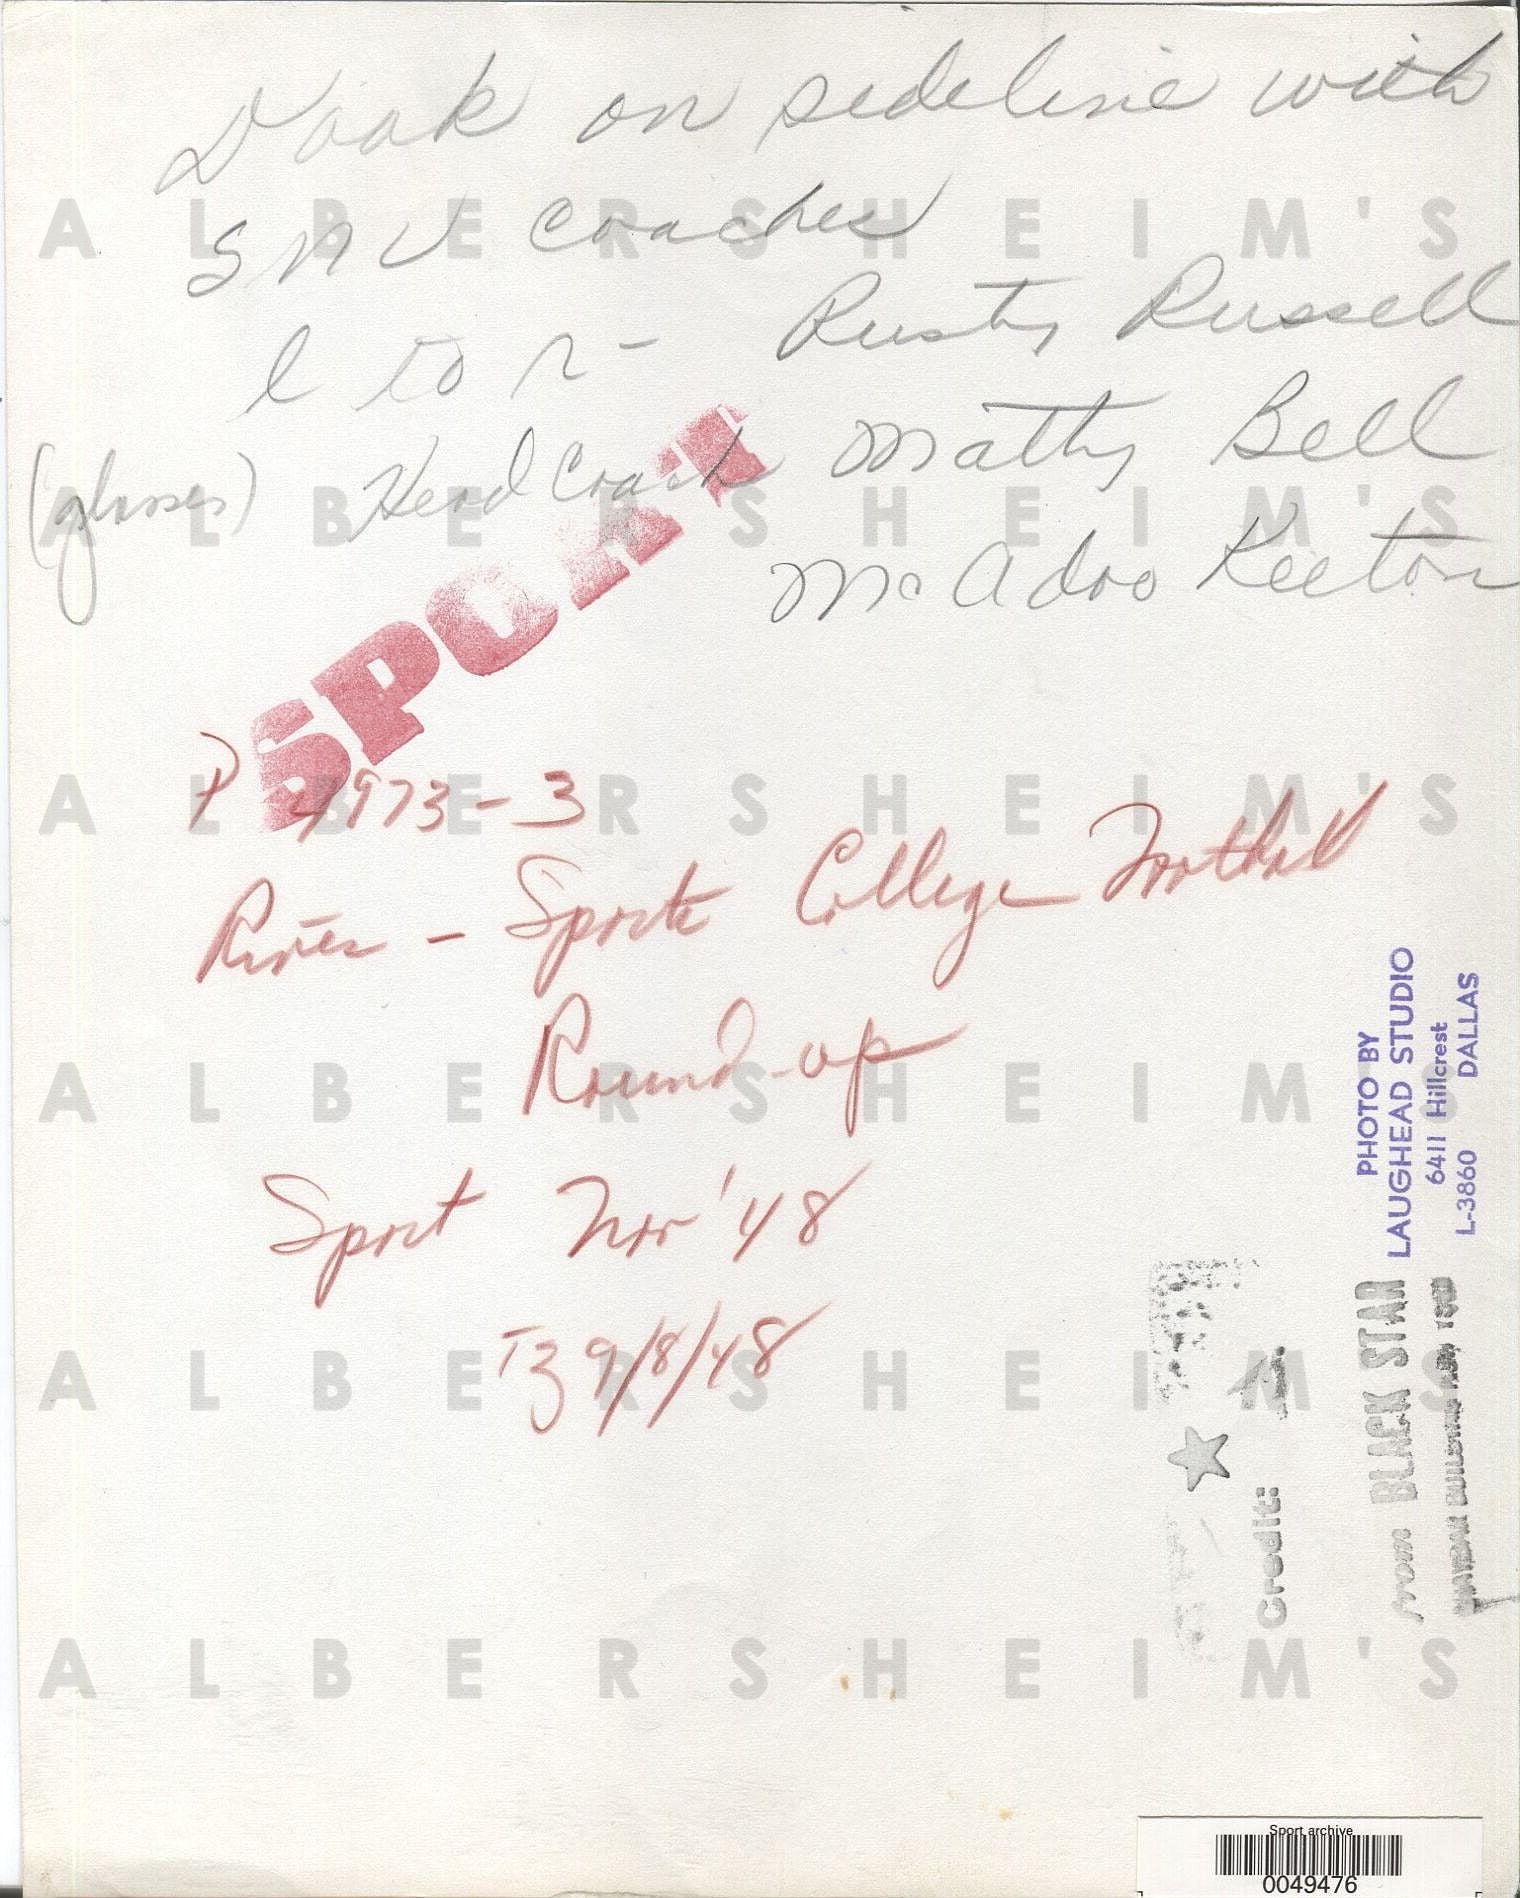 Doak on sideline with
SMU coaches
l to r - Rusty Russell
(glasses) Head Coach Matty Bell
McAdoo Keeton
SPORT
P 4973-3
- Sport's College Football
Round-up
Sport Nov '48
9/8/48
PHOTO BY
LAUGHEAD STUDIO
6411 Hillcrest
L-3860 DALLAS
Credit:
from BLACK STAR
ALBERSHEIM'S
ALBERSHEIM'S
ALBERSHEIM'S
ALBERSHEIM'S
ALBERSHEIM'S
ALBERSHEIM'S
Sport archive
0049476